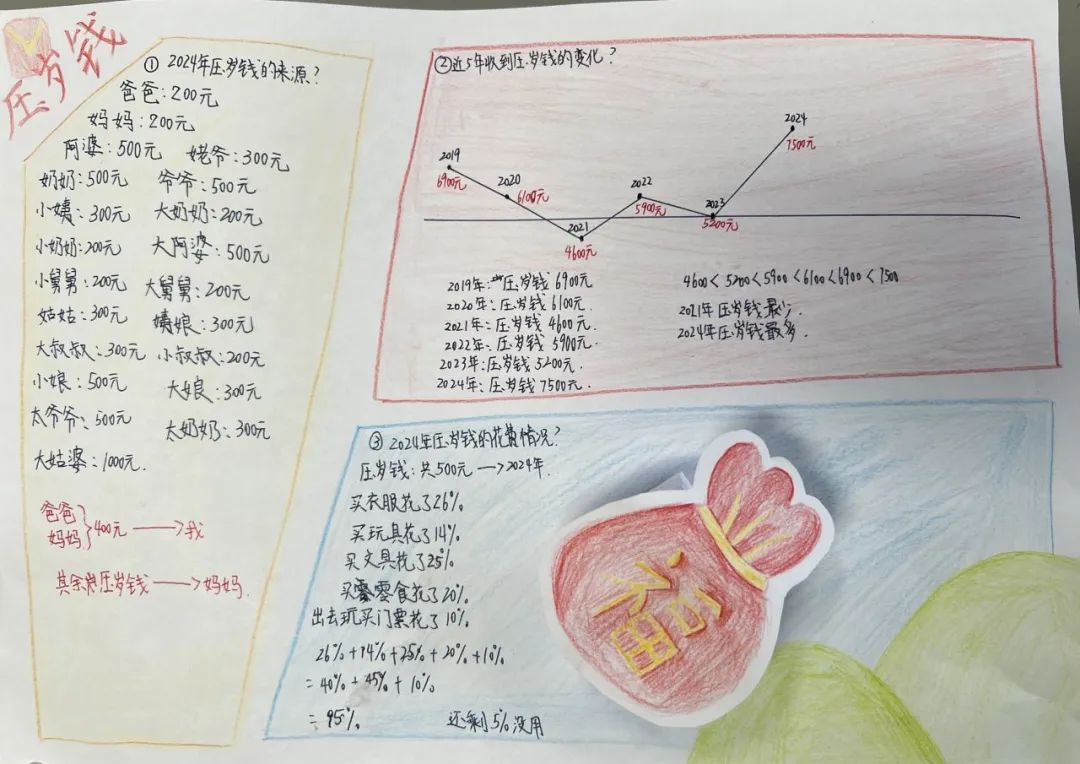 压岁钱
① 2024年压岁钱的来源?
爸爸:200元
妈妈:200元
阿婆:500元 姥爷:300元
奶奶:500元 爷爷:500元
小姨:300元 大奶奶:200元
小奶奶:200元 大阿婆:500元
小舅舅:200元 大舅舅:200元
姑姑:300元 姨娘:300元
大叔叔:300元 小叔叔:200元
小娘:500元 大娘:300元
太爷爷:500元 太奶奶:300元
大姑婆:1000元.
爸爸
妈妈 } 400元 → 我
其余岁压岁钱 → 妈妈.
② 近5年收到压岁钱的变化?
2019
6900元
2020
6100元
2021
4600元
2022
5900元
2023
5200元
2024
7500元
2019年:压岁钱 6900元
2020年:压岁钱 6100元.
2021年:压岁钱 4600元.
2022年:压岁钱 5900元.
2023年:压岁钱5200元.
2024年:压岁钱7500元.
4600<5200<5900<6100<6900<7500
2021年压岁钱最少.
2024年压岁钱最多.
③ 2024年压岁钱的花费情况?
压岁钱:共500元→2024年.
买衣服花了26%.
买玩具花了14%.
买文具花了25%.
买零食花了20%.
出去玩买门票花了10%.
26%+14%+25%+20%+10%
=40%+45%+10%
=95%. 还剩5%没用
福